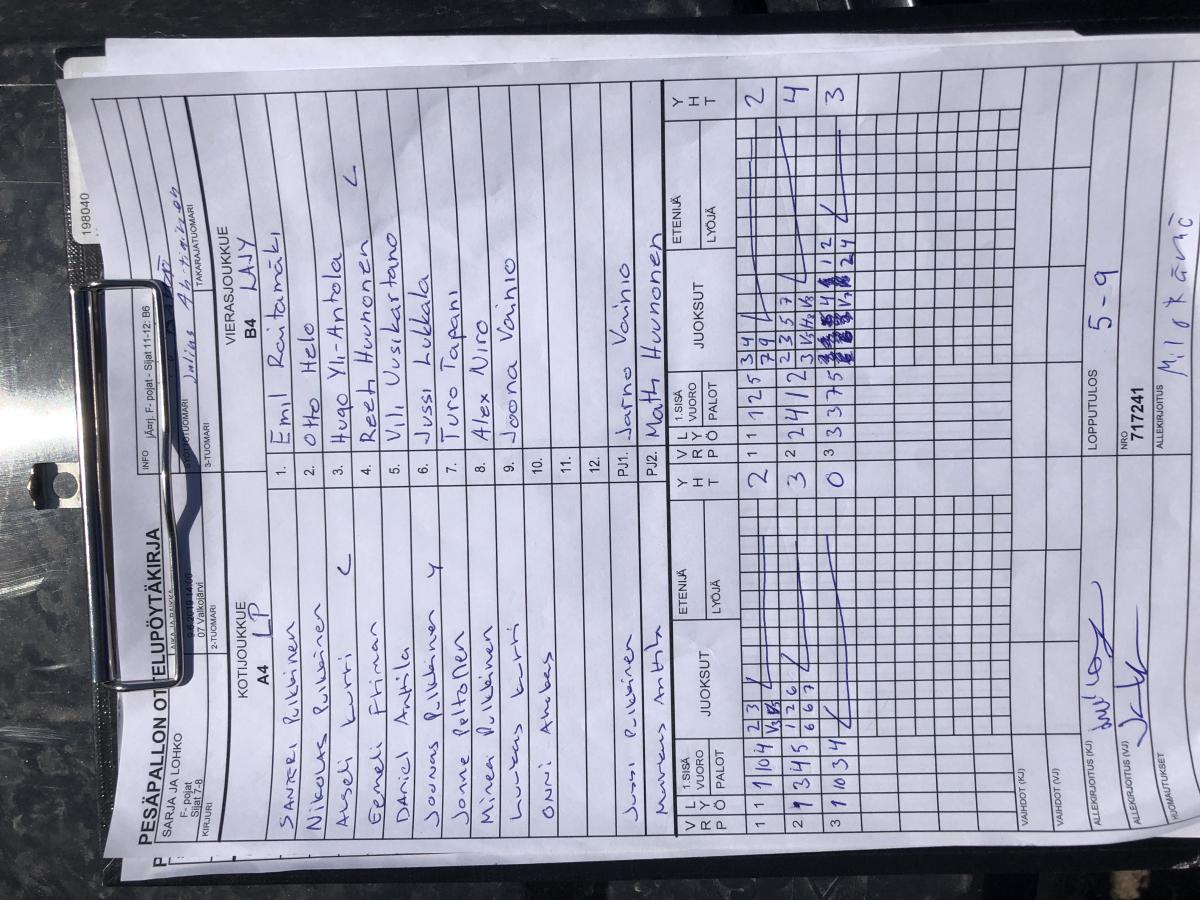 198040
PESÄPALLON OTTELUPÖYTÄKIRJA
SARJA JA LOHKO
F- pojat
Sijat 7-8
AIKA JA PAIKKA
9.6.2019 14:00
07 Valkojärvi
INFO
jÄrj. F- pojat - Sijat 11-12: B6
KIRJURI
2-TUOMARI
SYÖTTÖTUOMARI
Julius
3-TUOMARI
TAKARAJATUOMARI
KOTIJOUKKUE
A4 LP
VIERASJOUKKUE
B4 LAJY
SANTERI Pulkkinen
1. Emil Raitamäki
Nikolas Pulkkinen
2. Otto Helo
Akseli Kurri C
3. Hugo Yli-Antola
Eemeli Friman
4. Reeti Huunonen C
Daniel Anttila
5. Vili Uusikartano
Joonas Pulkkinen Y
6. Jussi Lukkala
Jonne Peltonen
7. Turo Tapani
Minea Pulkkinen
8. Alex Niro
Luukas Kurri
9. Joona Vainio
ONNI
10.
11.
12.
Jussi Pulkkinen
PJ1. Jarno Vainio
Markus Anttila
PJ2. Matti Huunonen
V R P
L Y Ö
1.SISÄ VUORO PALOT
JUOKSUT
ETENIJÄ
LYÖJÄ
Y H T
V R P
L Y Ö
1.SISÄ VUORO PALOT
JUOKSUT
ETENIJÄ
LYÖJÄ
Y H T
1 1 1 10 4 2 3 2
1 1 1 2 5 3 4 2
7 9
2 9 3 4 5 1 2 6 3
2 2 4 1 2 2 3 5 7 4
6 6 7
3 1 10 3 4 0
3 3 3 7 5 1 2 3
2 4
VAIHDOT (KJ)
VAIHDOT (VJ)
ALLEKIRJOITUS (KJ)
LOPPUTULOS
5 - 9
ALLEKIRJOITUS (VJ)
NRO
717241
HUOMAUTUKSET
ALLEKIRJOITUS